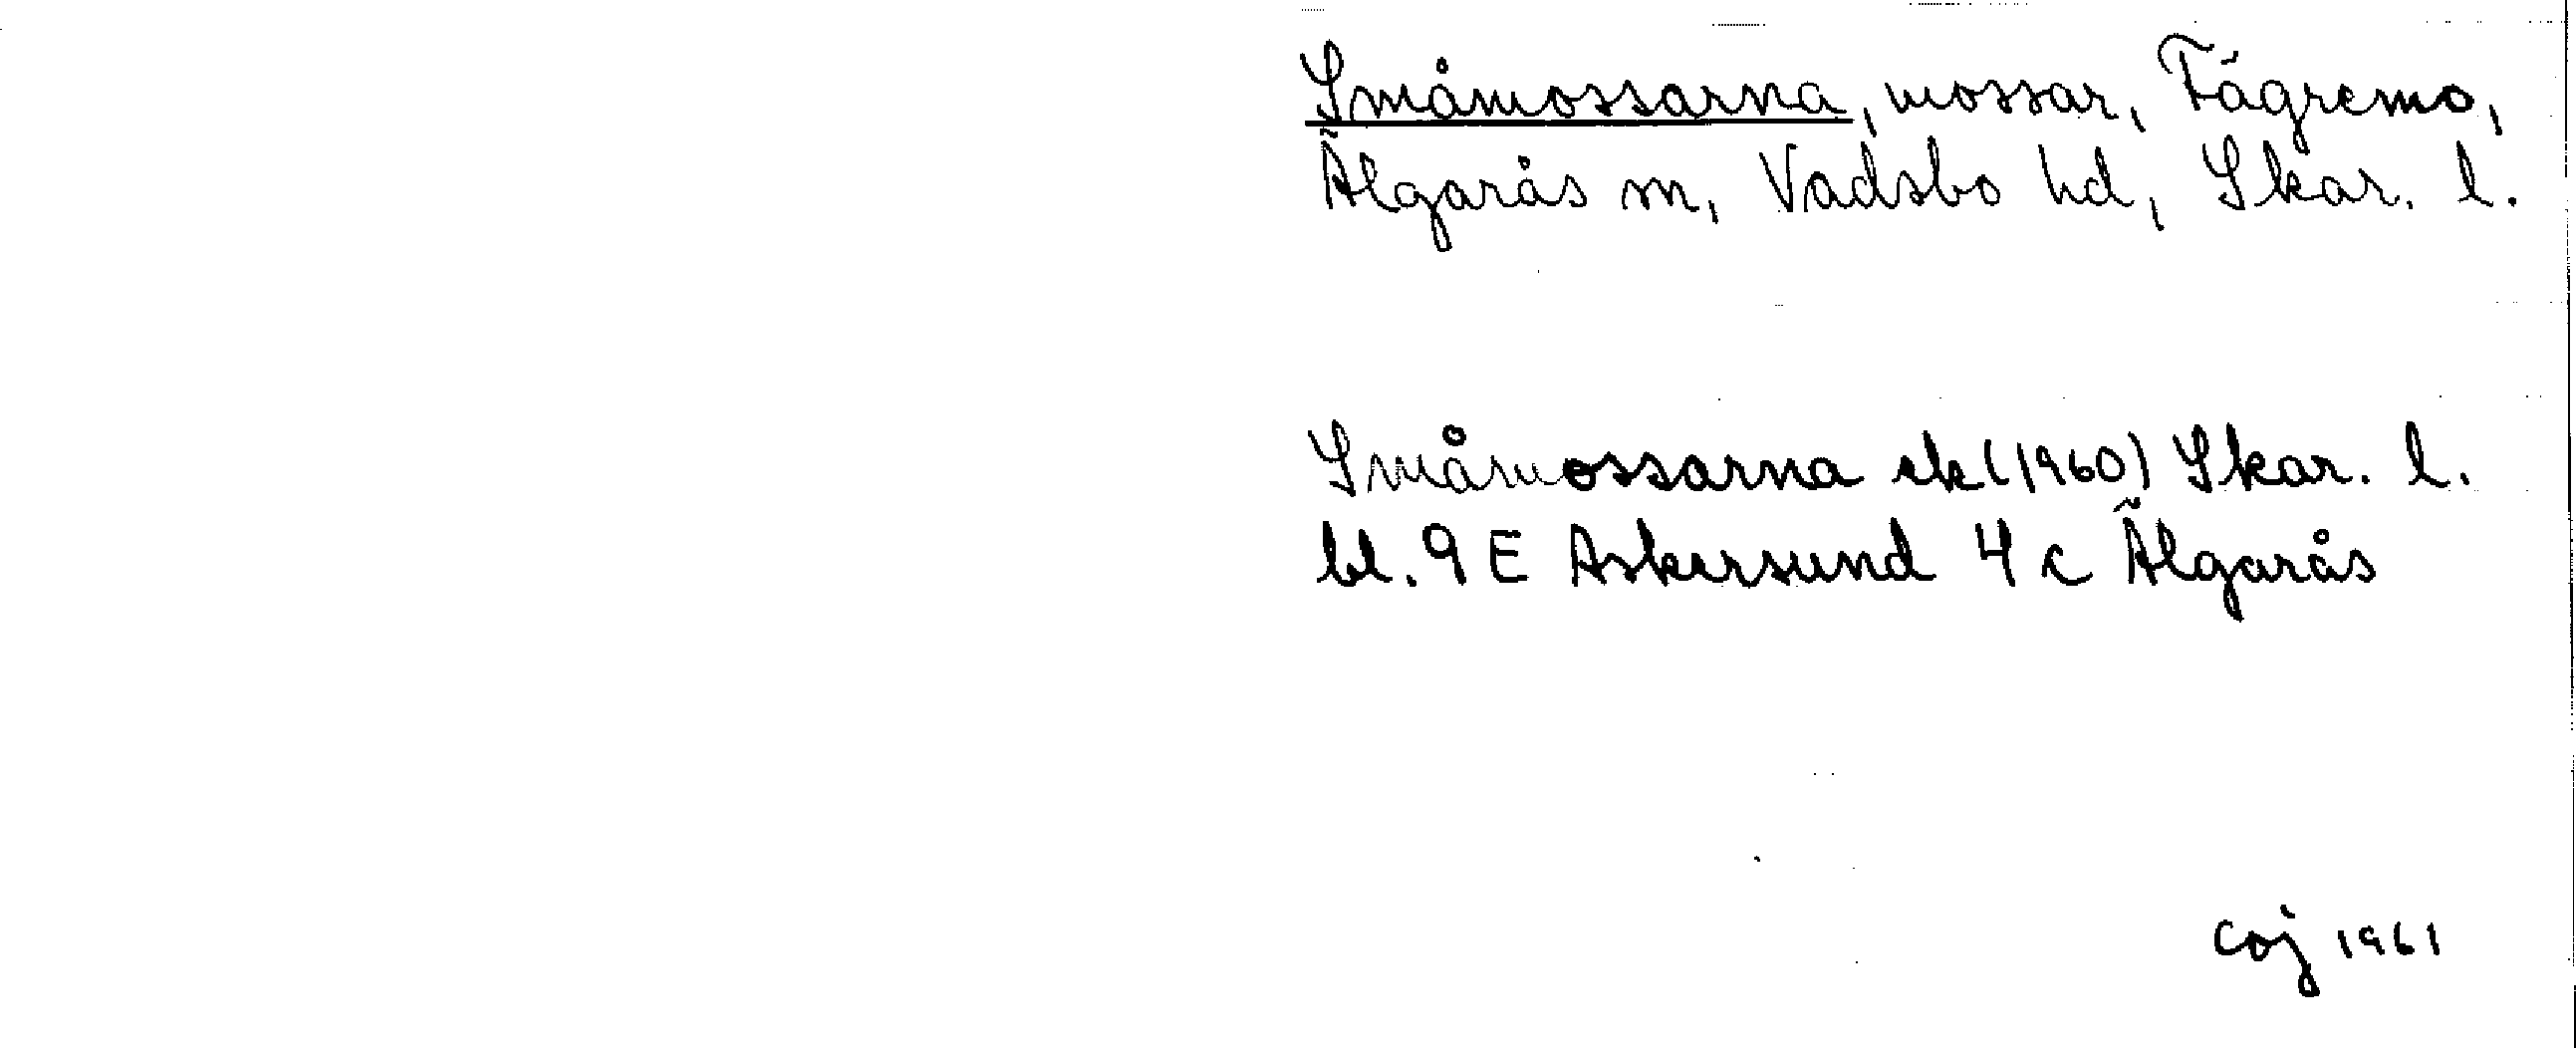 Småmossarna, mossar, Fägremo,
Älgarås sn, Vadsbo hd, Skar. l.
Småmossarna ek (1960) Skar. l.
bl. 9 E Askersund 4 c Älgarås
Coj 1961